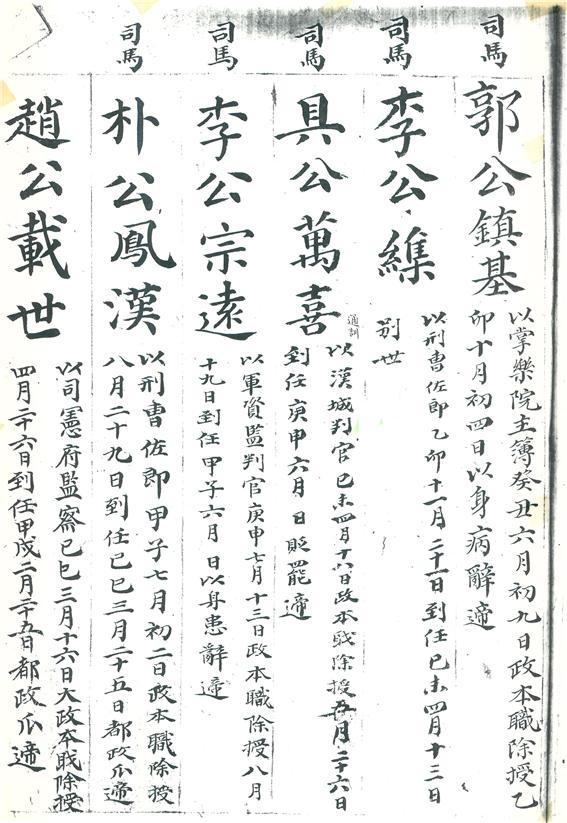 司馬
郭公鎭基
以掌樂院主簿癸丑六月初九日政本職除授乙
卯十月初四日以身病辭遞
司馬
李公維
以刑曹佐郎乙卯十一月二十一日到任己未四月十三日
別世
司馬
具公萬喜
通訓
以漢城判官己未四月十八日政本職除授五月二十六日
到任庚申六月 日貶罷遞
司馬
李公宗遠
以軍資監判官庚申七月十三日政本職除授八月
十九日到任甲子六月 日以身患辭遞
司馬
朴公鳳漢
以刑曹佐郎甲子七月初二日政本職除授
八月二十九日到任己巳三月二十五日都政瓜遞
趙公載世
以司憲府監察己巳三月十六日大政本職除授
四月二十六日到任甲戌二月二十五日都政瓜遞